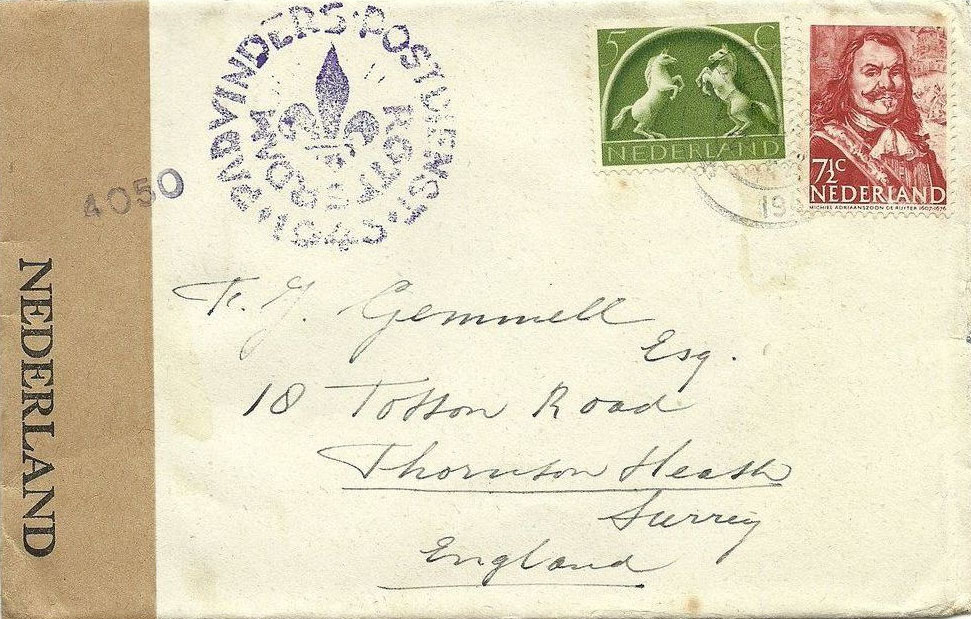 PADVINDERS·POSTDIENST·
ROTTEROM
1945
4050
NEDERLAND
5 C
NEDERLAND
7½c
NEDERLAND
MICHIEL ADRIAANSZOON DE RUYTER 1607-1676
19
Gemmell
Esq.
18 Totton Road
Thornton Heath
Surrey
England